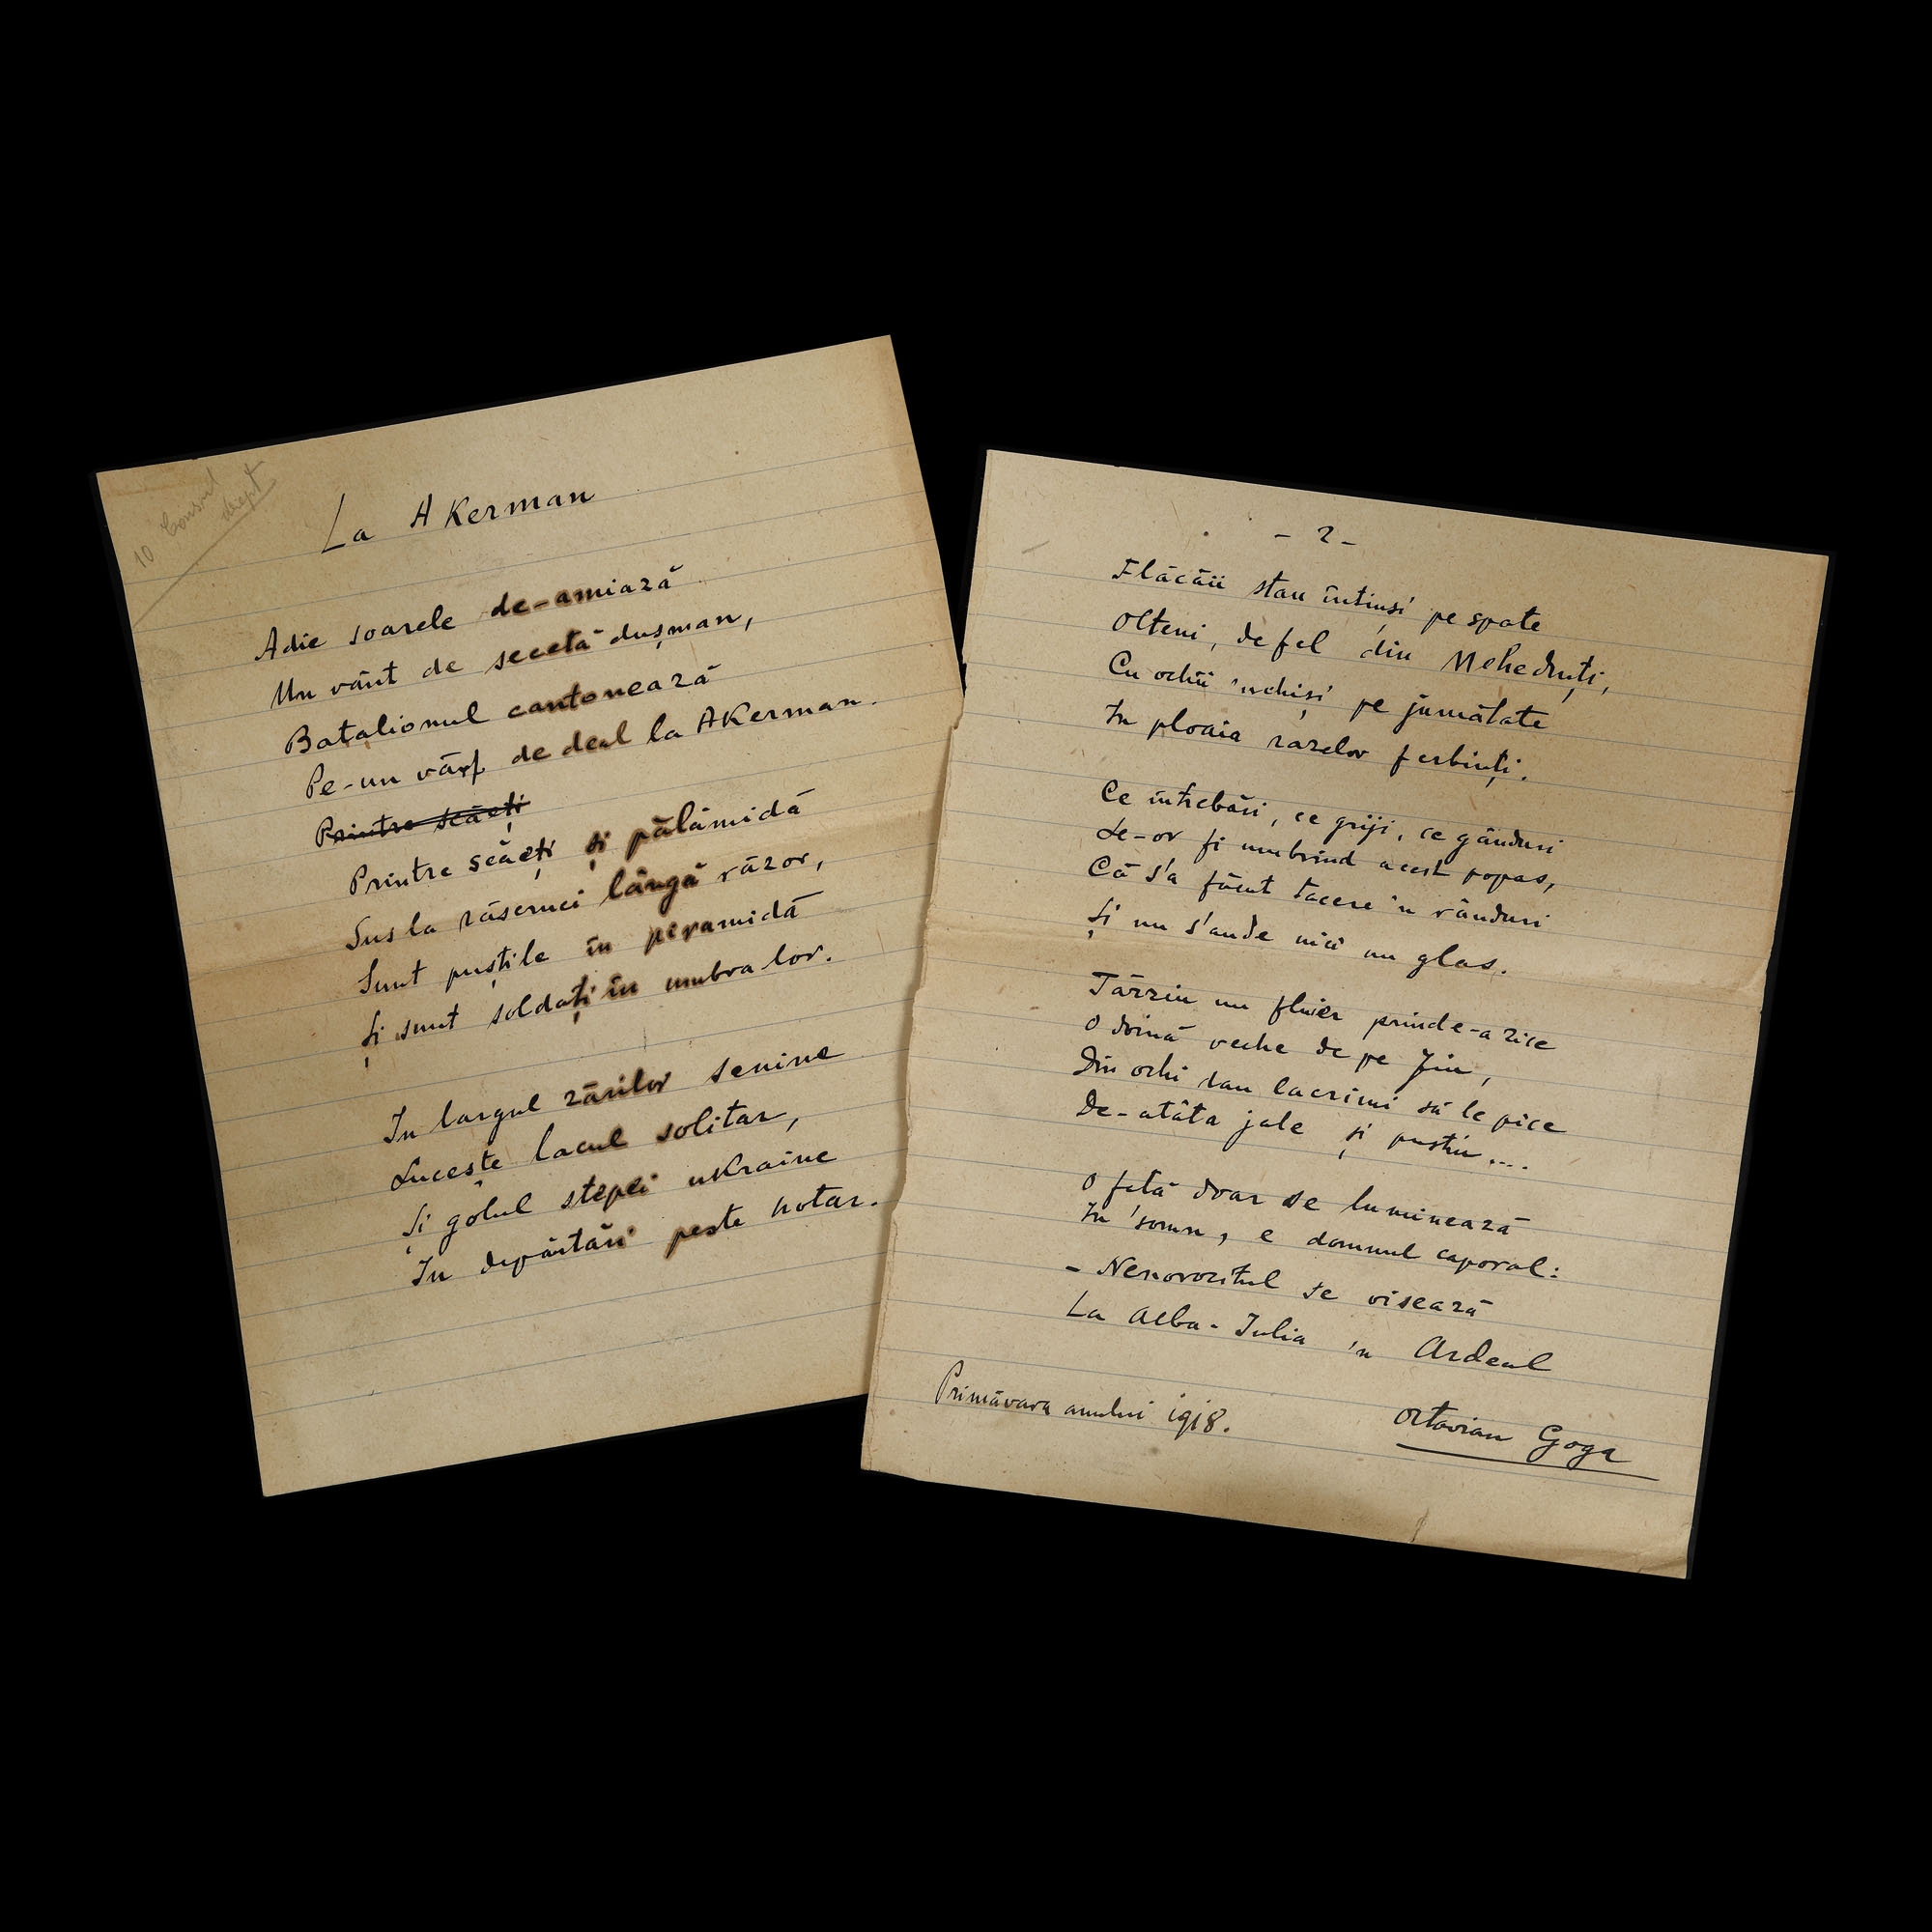 10 Consul
drept
La Akerman
Adie soarele de-amiază
Un vânt de secetă dușman,
Batalionul cantonează
Pe-un vârf de deal la Akerman.
Printre scăeți
Printre scăeți și pălămidă
Sus la răscruci lângă răzor,
Sunt puștile în peramidă
Și sunt soldați în umbra lor.
In largul zărilor senine
Lucește lacul solitar,
Și golul stepei ukraine
In depărtări peste hotar.
- 2 -
Flăcăii stau întinși pe spate
Olteni, de fel din Mehedinți,
Cu ochii 'nchiși pe jumătate
In ploaia razelor ferbinți.
Ce întrebări, ce griji, ce gânduri
Le-or fi umbrind acest popas,
Că s'a făcut tacere 'n rânduri
Și nu s'aude nici un glas.
Târziu un fluier prinde-a zice
O doină veche de pe Jiu,
Din ochi stau lacrimi să le pice
De-atâta jale și pustiu....
O fată doar se luminează
In somn, e domnul caporal:
- Nenorocitul se visează
La Alba-Iulia 'n Ardeal
Primăvara anului 1918.
Octavian Goga